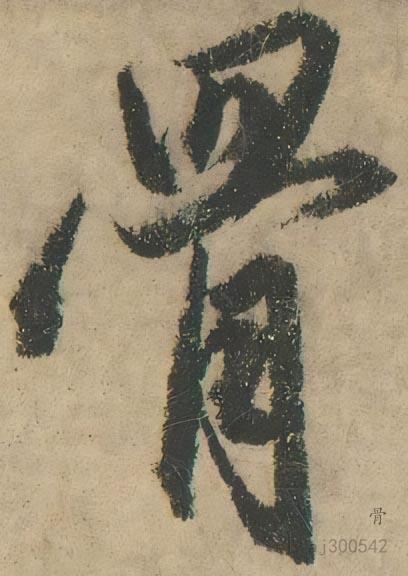 骨
骨
j300542